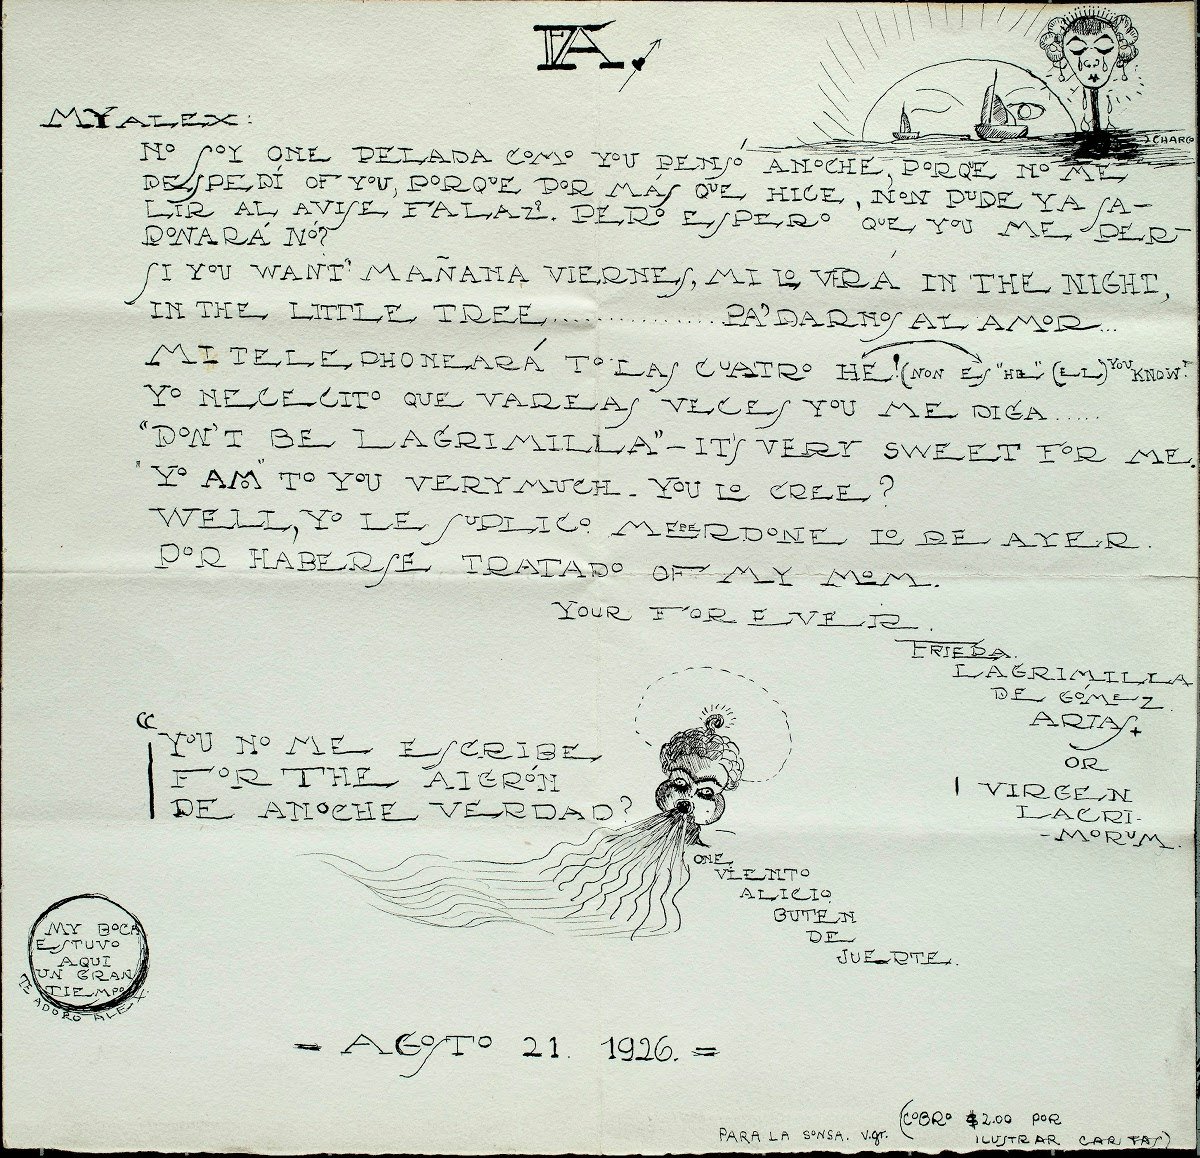 FA
MY ALEX:
NO SOY ONE PELADA COMO YOU PENSÓ ANOCHE, PORQE NO ME
DESPEDÍ OF YOU, PORQUE POR MÁS QUE HICE, NON PUDE YA SA-
LIR AL AVISE FALAZ?. PERO ESPERO QUE YOU ME PER-
DONARÁ NÓ?
SI YOU WANT' MAÑANA VIERNES, MI LO VERÁ IN THE NIGHT,
IN THE LITTLE TREE............... PA' DARNOS AL AMOR...
MI TELEPHONEARÁ TO LAS CUATRO HE! (NON ES "HE" (EL) YOU KNOW?
YO NECECITO QUE VAREAS VECES YOU ME DIGA .....
"DON'T BE LAGRIMILLA" - IT'S VERY SWEET FOR ME.
"YO AMO" TO YOU VERY MUCH. YOU LO CREE?
WELL, YO LE SUPLICO ME PERDONE LO DE AYER.
POR HABERSE TRATADO OF MY MOM.
YOUR FOR EVER.
FRIEDA.
LAGRIMILLA
DE GÓMEZ
ARIAS
OR
VIRGEN
LACRI-
-MORUM.
"YOU NO ME ESCRIBE
FOR THE AIGRÓN
DE ANOCHE VERDAD?
ONE
VIENTO
ALICIO
BUTEN
DE
JUERTE.
MY BOCA
ESTUVO
AQUI
UN GRAN
TIEMPO
TE ADORO ALEX.
- AGOSTO 21. 1926. =
PARA LA SONSA. V.gr. (COBRO $2.00 POR
ILUSTRAR CARTAS)